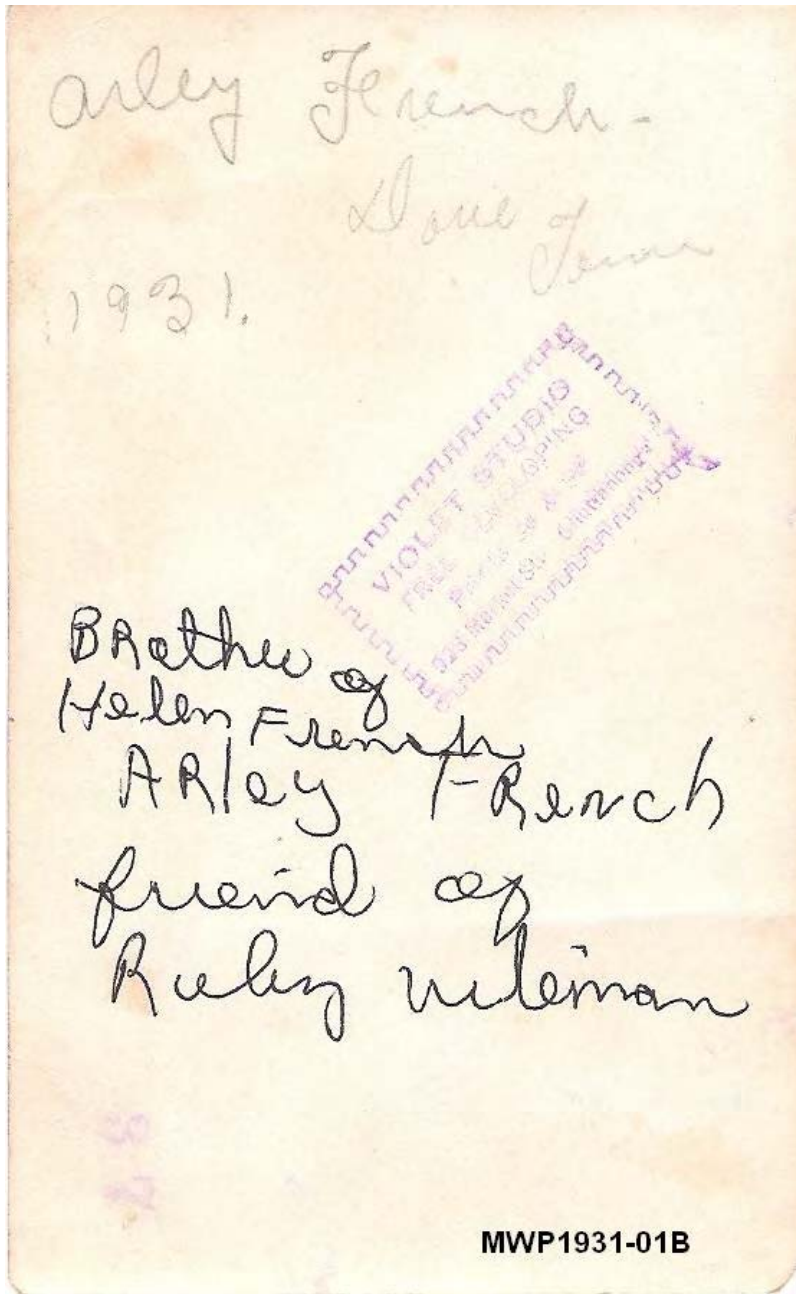 Arley French -
Tenn
1931.
VIOLET STUDIO
FREE DEVELOPING
Prints
Market St. Chattanooga
BRother of
Helen French
ARley FRench
friend of
Ruby
MWP1931-01B